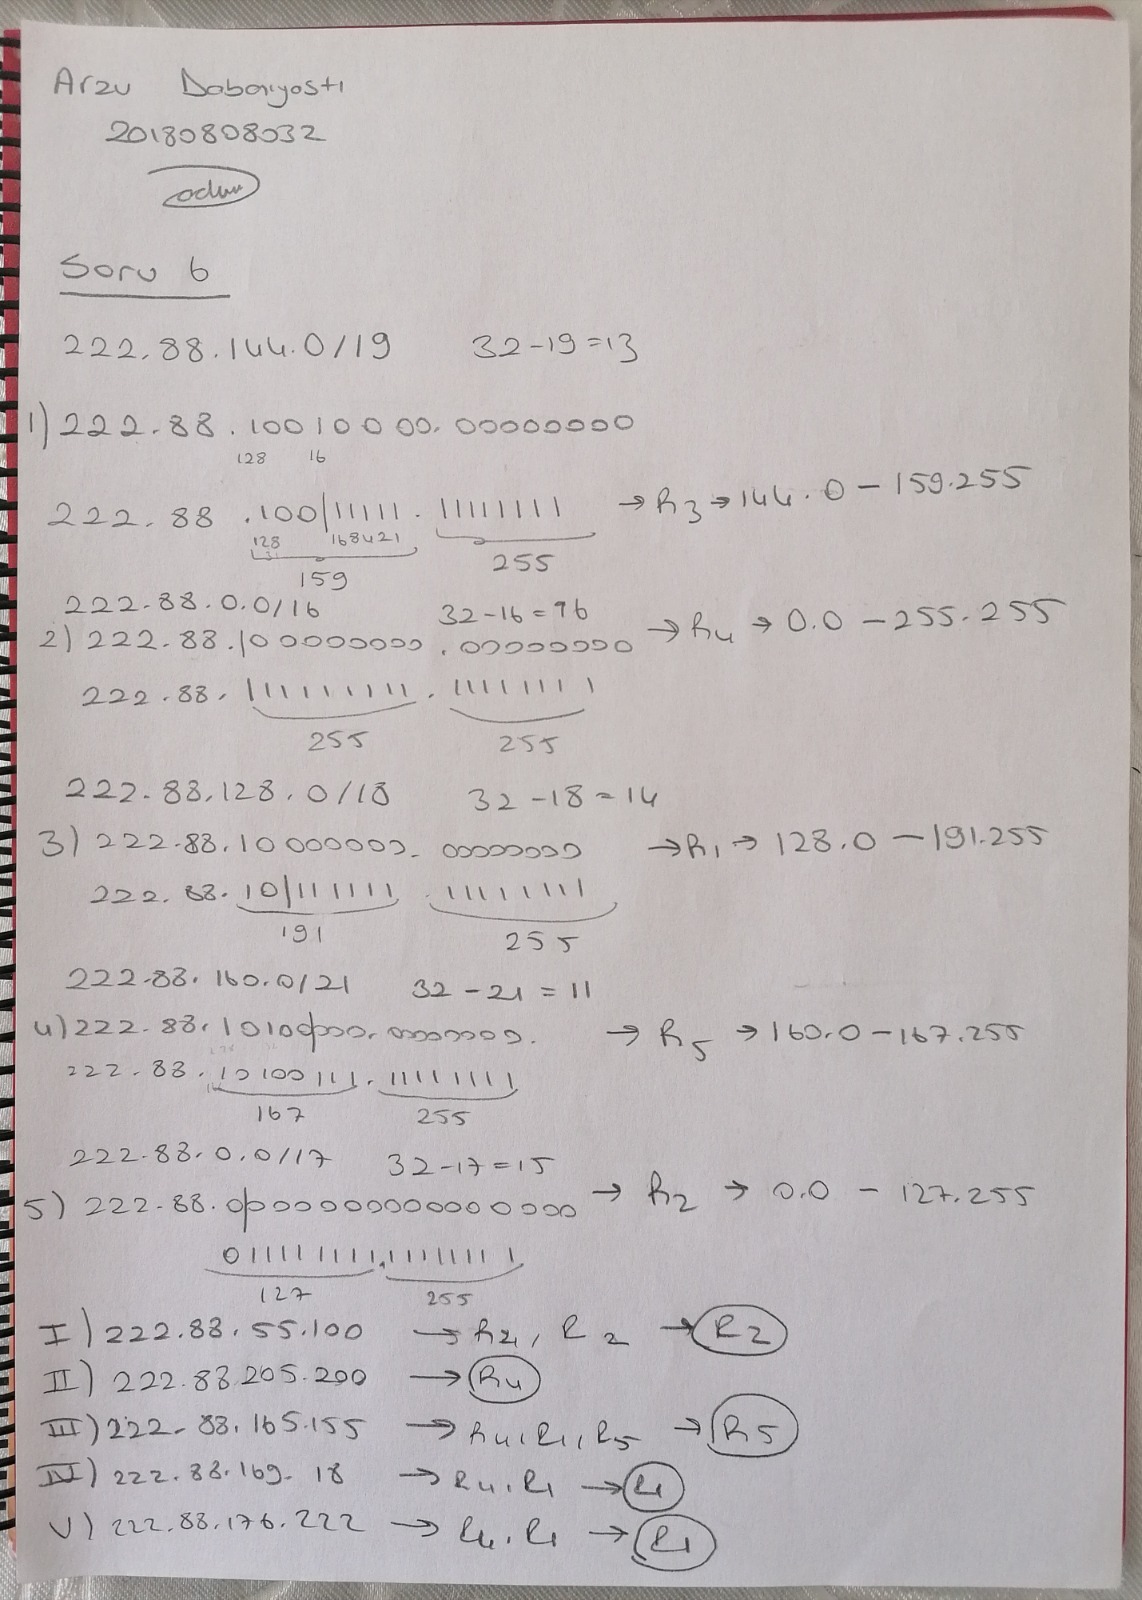 Arzu Dabanyastı
20180808032
Soru 6
222.88.144.0/19 32-19=13
1) 222.88.10010000.00000000
128 16
222.88.100|11111.11111111 → R3 → 144.0 - 159.255
128 168421
159 255
222.88.0.0/16 32-16=96
2) 222.88.|000000000.00000000 → R4 → 0.0 - 255.255
222.88.111111111.11111111
255 255
222.88.128.0/18 32-18=14
3) 222.88.10000000.00000000 → R1 → 128.0 - 191.255
222.88.10|111111.11111111
191 255
222.88.160.0/21 32-21=11
4) 222.88.10100|000.00000000. → R5 → 160.0 - 167.255
222.88.10100111.11111111
167 255
222.88.0.0/17 32-17=15
5) 222.88.0|00000000000000 → R2 → 0.0 - 127.255
011111111.11111111
127 255
I) 222.88.55.100 → R4, R2 → R2
II) 222.88.205.200 → R4
III) 222.88.165.155 → R4, R1, R5 → R5
IV) 222.88.169.18 → R4, R1 → R1
V) 222.88.176.222 → R4, R1 → R1